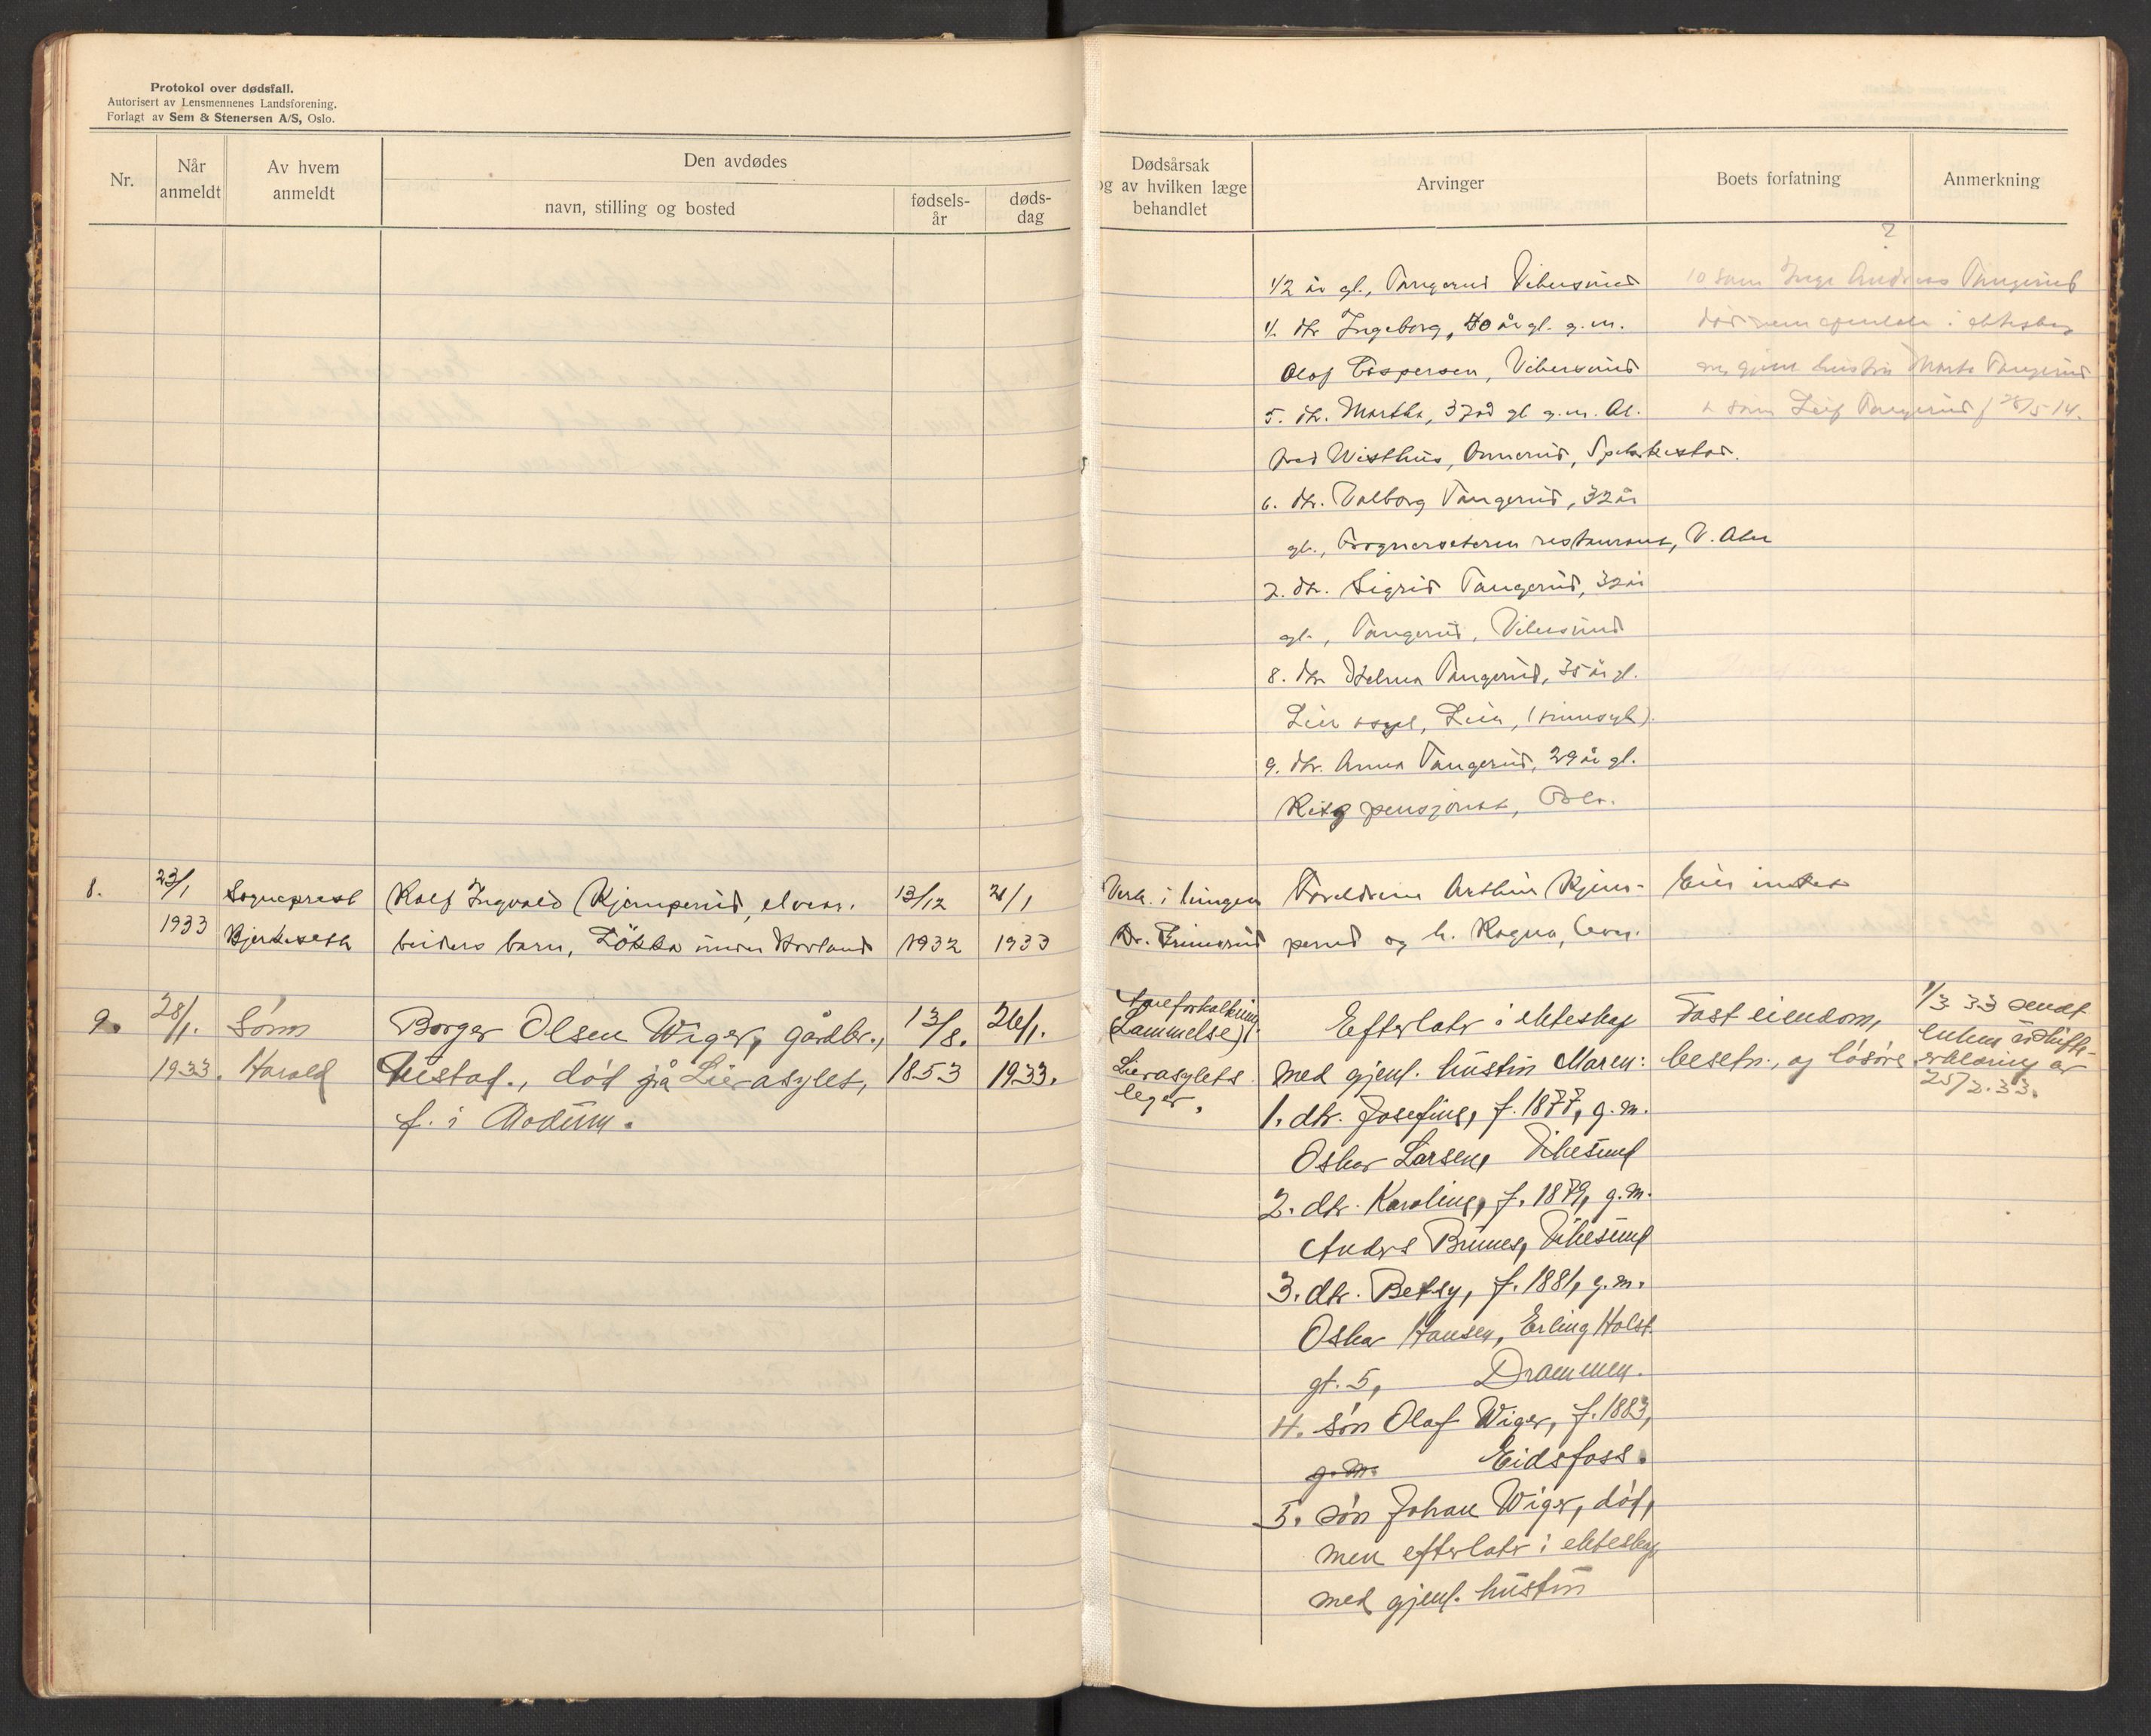 Protokol over dødsfall.
Autorisert av Lensmennenes Landsforening.
Forlagt av Sem & Stenersen A/S, Oslo.
Nr.
Når anmeldt
Av hvem anmeldt
Den avdødes
navn, stilling og bosted
fødsels-år
døds-dag
Dødsårsak
og av hvilken læge
behandlet
Arvinger
Boets forfatning
Anmerkning
år gl., Tangerud Vikersund
dtr. Ingeborg, 40 år gl. g.m.
Olof Espersen, Vikersund
5. dtr. Martha, 37 år gl. g.m. Al-
fred Wisthus, Onnerud,
6. dtr. Valborg Tangerud, 32 år
gl., Frognerseteren restaurant, V. Aker
7. dtr. Sigrid Tangerud, 32 år
gl., Tangerud, Vikersund
8. dtr. Tangerud, 35 år gl.
Lier asyl, Lier, (sinnsyk).
9. dtr. Anna Tangerud, 29 år gl.
pensjonat,
10 søn Inge Andreas Tangerud
død men efterlater i ekteskap
m. gjenl. hustru Marta Tangerud
søn Leif Tangerud f. 28/5 14.
8.
23/1
1933
Sogneprest
Bjerkeseth
Rolf Ingvald Kjemperud, elvear-
beiders barn, Løkka under Hovland
13/12
1932
21/1
1933
Verk. i lungen
Dr.
Foreldrene Arthur Kjem-
perud og h. Ragna,
Eier intet
9.
28/1.
1933.
Sønn
Harald
Borger Olsen Wiger, gårdbr.,
Gustad., død på Lierasylet,
f. i Modum.
13/8.
1853
26/1.
1933.
Åreforkalkning
(Lammelse).
Lierasylets
leger.
Efterlatr i ekteskap
med gjenl. hustru Maren:
1. dtr. Josefine, f. 1877, g.m.
Oskar Larsen, Vikesund
2. dtr. Karoline, f. 1879, g.m.
Anders Brunes, Vikesund
3. dtr. Betsy, f. 1881, g.m.
Oskar Hansen, Erling Holst
gt. 5, Drammen.
4. søn Olaf Wiger, f. 1883,
g.m. Eidsfoss.
5. søn Johan Wiger, død,
men efterlatr i ekteskap
med gjenl. hustru
Fast eiendom,
besetn., og løsøre
1/3 33 sendt
enken uskifte-
erklæring av
25/2.33.